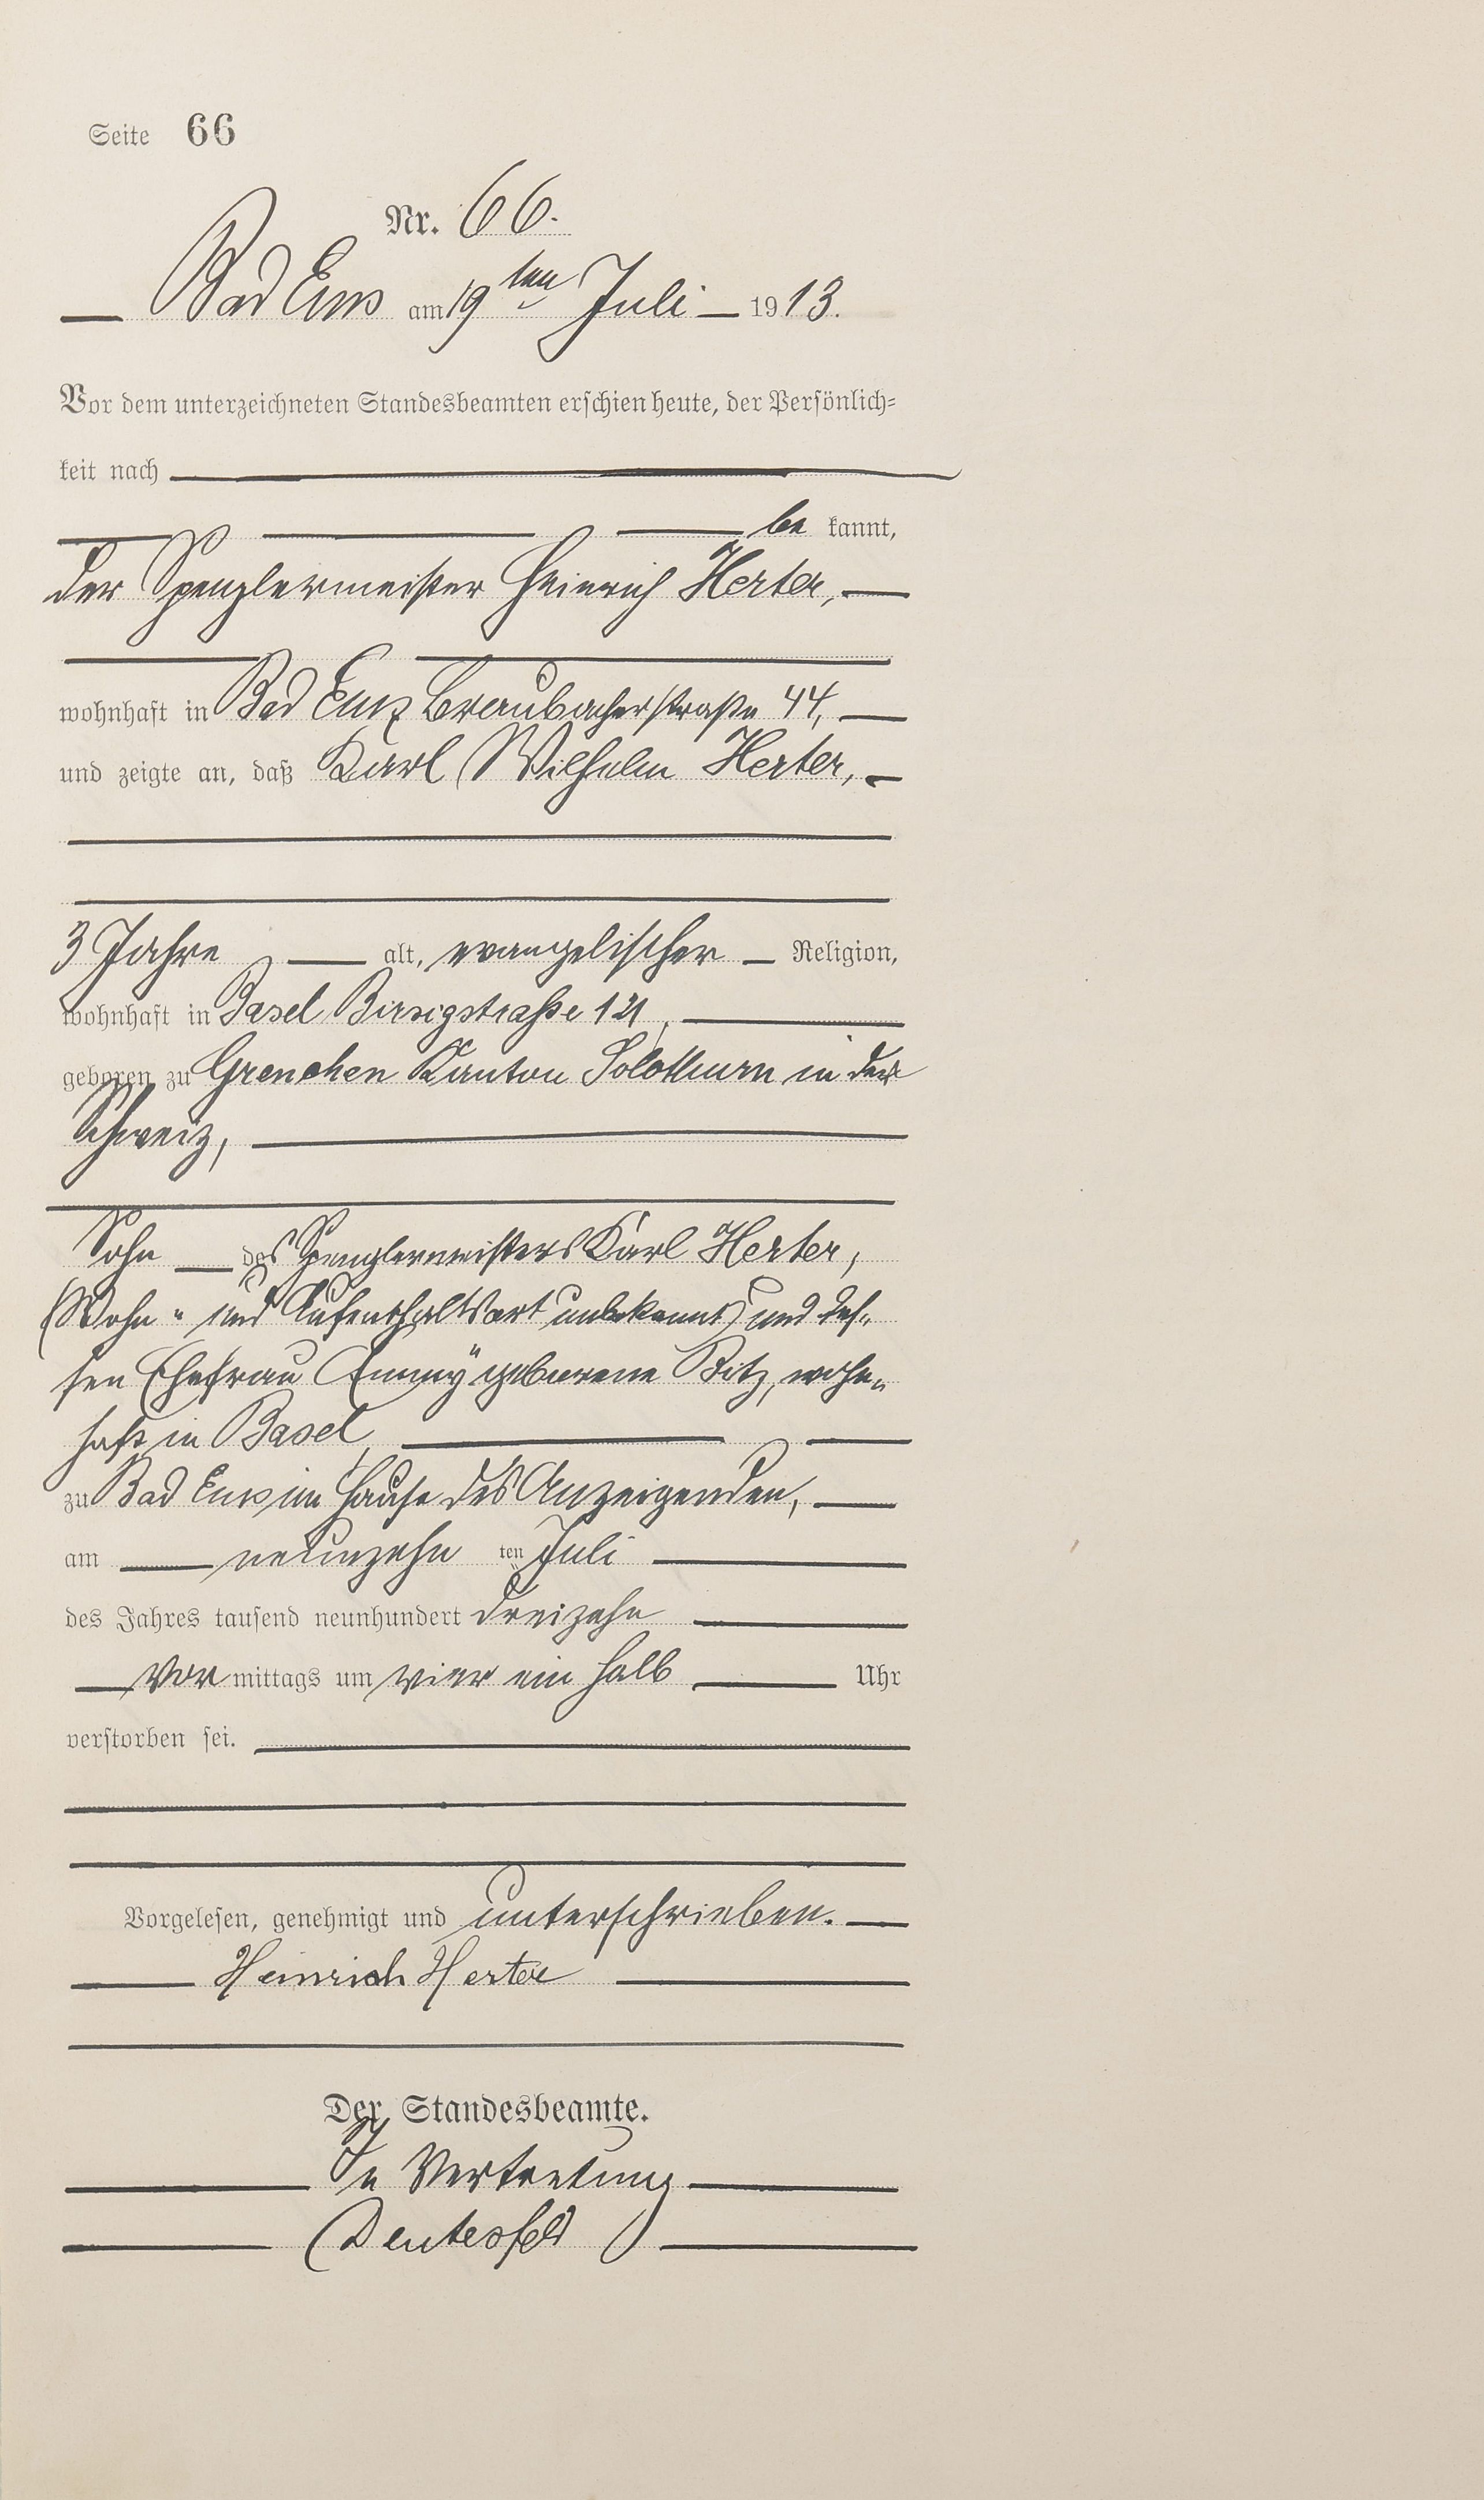 Seite 66
Nr. 66.
Bad Ems am 19ten Juli 1913.
Vor dem unterzeichneten Standesbeamten erschien heute, der Persönlich=
keit nach
be kannt,
der Spenglermeister Heinrich Herter,
wohnhaft in Bad Ems Braubacherstraße 44,
und zeigte an, daß Karl Wilhelm Herter,
3 Jahre alt, evangelischer Religion,
wohnhaft in Basel Birsigstraße 121,
geboren zu Grenchen Kanton Solothurn in der
Schweiz,
Sohn des Spenglermeisters Karl Herter,
(Wohn- und Aufenthaltsort unbekannt) und des-
sen Ehefrau Emmy geborene Bitz, wohn-
haft in Basel,
zu Bad Ems im Hause des Anzeigenden,
am neunzehn ten Juli
des Jahres tausend neunhundert dreizehn
Vor mittags um vier ein halb Uhr
verstorben sei.
Vorgelesen, genehmigt und unterschrieben.
Heinrich Herter
Der Standesbeamte.
In Vertretung
Deutesfeld